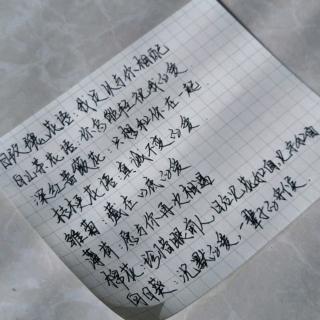 白玫瑰花语：我足以与你相配
白山茶花语：你怎能轻视我的爱
深红蔷薇花：只想和你在一起
桔梗花语：真诚不变的爱
雏菊：藏在心底的爱
薄荷：愿与你再次相遇
惜花
向日葵：沉默的爱，一辈子的守候